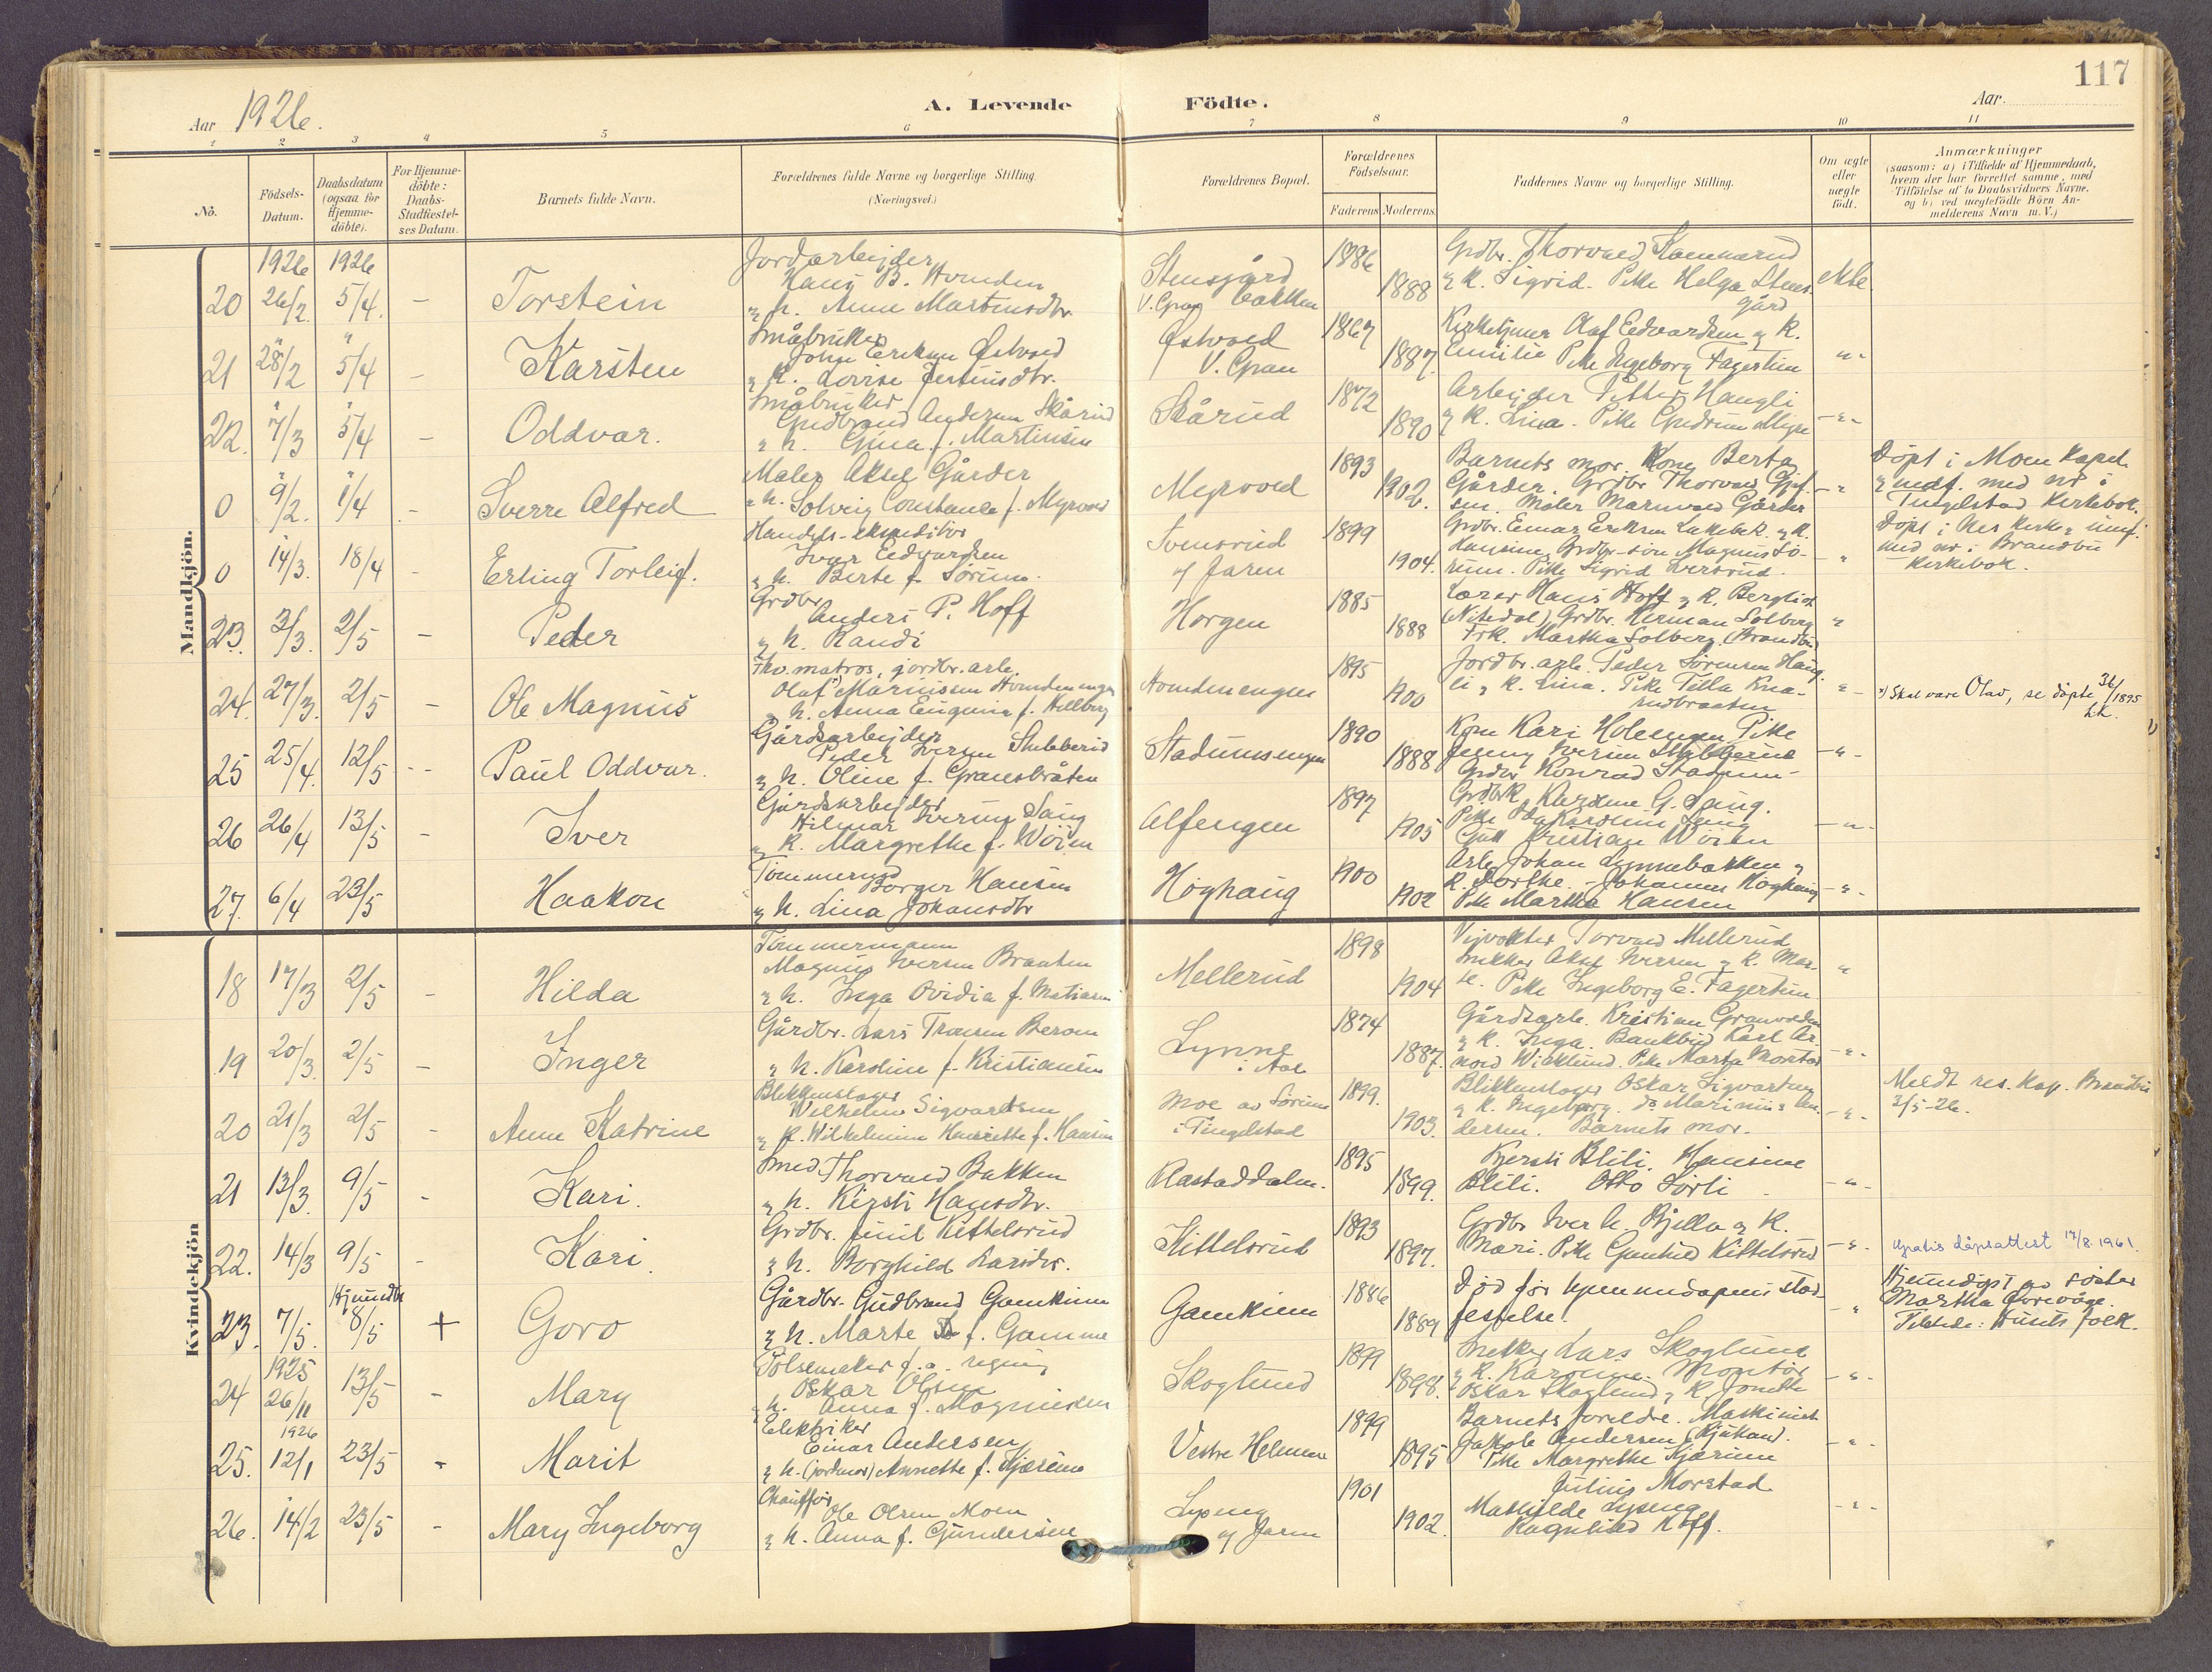 117
Aar 1926.
A. Levende Födte.
Aar.
1 2 3 4 5 6 7 8 9 10 11
No.
Födsels-Datum.
Daabsdatum (ogsaa for Hjemme-döbte).
For Hjemme-döbte: Daabs-Stadfæstel-ses Datum.
Barnets fulde Navn.
Forældrenes fulde Navne og borgerlige Stilling
(Næringsvei.)
Forældrenes Bopæl.
Forældrenes Födselsaar.
Faderens Moderens
Faddernes Navne og borgerlige Stilling.
Om ægte eller uægte födt.
Anmærkninger
(saasom: a) i Tilfælde af Hjemmedaab,
hvem der har forrettet samme, med
Tilföielse af to Daabsvidners Navne,
og b) ved uægtefödte Börn An-
melderens Navn m. V.)
Mandkjön.
1926 1926
20 26/2. 5/4. - Torstein
Jordarbeijder
Hans B. Homden
& h. Anne Martinsdtr.
Stensgård
V. Gran bakken
1886 1888
Grdbr. Thorvald
& k. Sigrid. Pike Helga Stens-
gård
ekte
21 28/2 5/4 - Karsten
Småbruker
Johan Eriksen Østvold
& k. Lovise Jensinsdtr.
Østvold
V. Gran
1867 1887.
Kirketjener Olaf Edvardsen & k.
Emilie Pike Ingeborg Fagertun
-"-
22. 7/3 5/4 - Oddvar.
Småbruker
Gudbrand Andersen Skårud
& h. Gina f. Martinsen
Skårud
1872 1890
Arbeijder Petter Haugli
& k. Lina. Pike Gudrun Myre
-"-
0 9/2. 1/4 - Sverre Alfred
Maler Aksel Gårder
& h. Solveig Constance f. Myrvold
Myrvold
1893 1902.
Barnets mor. Kone Berta
Gårder. Grdbr Thorvald
sen. Maler Marnvald Gårder
-"
Döpt i Moen kapel
& indf. med nr i
Tingelstad kirkebok.
0 14/3. 18/4 - Erling Torleif.
Handels-ekspeditör
Ivar Edvardsen
& h. Berte f. Sörum.
Svensrud
pf Jaren
1899 1904.
Grdbr. Einar Eriksen & k.
Hansine, Grdbr-sön Magnus Sö-
rum. Pike Sigrid Iversrud.
"
Döpt i Nes kirke & innf.
med nr i Brandbu
kirkebok.
23. 3/3. 2/5 - Peder
Grdbr.
Anders P. Hoff
& h. Randi
Horgen
1885 1888
Lærer Hans Hoff & k. Bergliot
(Nitedal), Grdbr. Herman Solberg
Frk. Martha Solberg (Brandbu)
"
24. 27/3. 2/5 - Ole Magnus
Fhv. matros, jordbr. arb.
Olaf x) Marinisen Homdenengen
& h. Anna Eugenia f. Hellberg
Homdenengen
1895 1900
Jordbr. arb. Peder Sörensen Haug-
li & k. Lina. Pike Tella Kna-
rudbraaten
"-
x) Skal være Olav, se döpte 36/1895
25 25/4. 12/5 - Paul Oddvar.
Gårdsarbeijder
Peder Iversen Stubberud
& h. Oline f. Gransbråten
Stadumsengen
1890 1888
Kone Kari Holsengen Pike
Jenny Iversen Stubberud
Grdbr Konrad Stadum-
-"-
26 26/4 13/5 - Iver
Gårdsarbeijder
Hilmar Iversen Saug
& k. Margrethe f. Wöien
Alfengen
1897 1905
Grdbr. k. Karoline G. Saug.
Gutt Kristian Wöien
-"-
27. 6/4 23/5 Haakon
Tömmermd
Borger Hansen
& h. Lina Johansdtr
Höghaug
1900 1902
Arb. Johan Lynnebakken &
k. Dorthe. Johannes Höghaug
Pike Martha Hansen
-"-
Kvindekjön
18 17/3 2/5 - Hilda
Tömmermann
Magnus Iversen Braaten
& h. Inga Ovidia f. Matiasen
Mellerud
1898 1904
Veivokter Torvald Mellerud
Snekker Aksel Iversen & k. Mar-
te. Pike Ingeborg E. Fagertun
"
19 20/3. 2/5 - Inger
Gårdbr. Lars Tronsen Berom
& h. Karoline f. Kristiansen
Lynne
i Aal
1874 1887.
Gårdsarb. Kristian Granvolden
& k. Inga. Bankbud Karl Ar-
nold Wicklund. Pike Marta Morstad
-"-
20 21/3 2/5 - Anne Katrine
Blikkenslager
Wilhelm Sigvartsen
& k. Wilhelmine Henriette f. Hansen
Moe av Sörum
i Tingelstad
1899. 1903.
Blikkenslager Oskar Sigvartsen
& k. Ingeborg. Do Marinius An-
dersen. Barnets mor.
-"-
Meldt res. kap. Brandbu
3/5-26.
21 13/3. 9/5 - Kari.
Smed Thorvald Bakken
& h. Kirsti Hansdtr.
Rastaddalen.
1895 1899.
Kjersti Blili. Hansine
Blili. Otto Sörli
-"-
22. 14/3 9/5 - Kari.
Grdbr. Emil Kittelsrud
& h. Borghild Larsdtr.
Kittelsrud
1893 1897.
Grdbr Iver h. Bjella & k.
Mari. Pike Gunhild Kittelsrud
-"-
Gratis dåpsattest 17/8.1961.
Hjemmedbt
23. 7/5. 8/5 + Goro
Gårdbr. Gudbrand Gamkinn
& h. Marte f. Gamme
Gamkinn
1886 1889
Död för hjemmedaapens stad-
festelse.
"
Hjemmedöpt av söster
Martha
Tilstede: Husets folk.
1925
24 26/11 13/5 - Mary
Pölsemaker f. e. regning
Oskar Olsen
& h. Anna f. Magnussen
Skoglund
1899 1898.
Snekker Lars Skoglund
& k. Karoline. Montör
Oskar Skoglund & k. Jonette
-"-
1926
25. 12/1 23/5 - Marit
Elektriker
Einar Andersen
& h. (jordmor) Annette f. Kjærum
Vestre Helmen
1899 1895
Barnets foreldre. Maskinist
Jakob Andersen (Rjukan).
Pike Margrethe Kjærum
-"-
26. 14/2 23/5 - Mary Ingeborg
Chauffør
Ole Olsen Moen
& h. Anna f. Gundersen
Lyseng
pf Jaren
1901 1902.
Julius Morstad
Mathilde Lyseng
Ragnhild Hoff.
-"-